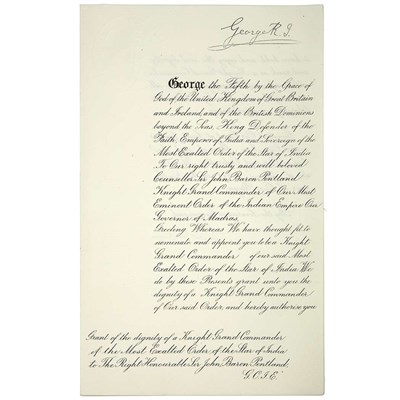 George R. I.
George the Fifth by the Grace of
God of the United Kingdom of Great Britain
and Ireland, and of the British Dominions
beyond the Seas, King Defender of the
Faith, Emperor of India and Sovereign of the
Most Exalted Order of the Star of India
To Our right trusty and well beloved
Counsellor Sir John, Baron Pentland
Knight Grand Commander of Our Most
Eminent Order of the Indian Empire Our
Governor of Madras.
Greeting Whereas We have thought fit to
nominate and appoint you to be a Knight
Grand Commander of our said Most
Exalted Order of the Star of India We
do by these Presents grant unto you the
dignity of a Knight Grand Commander
of Our said Order, and hereby authorise you
Grant of the dignity of a Knight Grand Commander
of the Most Exalted Order of the Star of India
to The Right Honourable Sir John, Baron Pentland,
G.C.I.E.